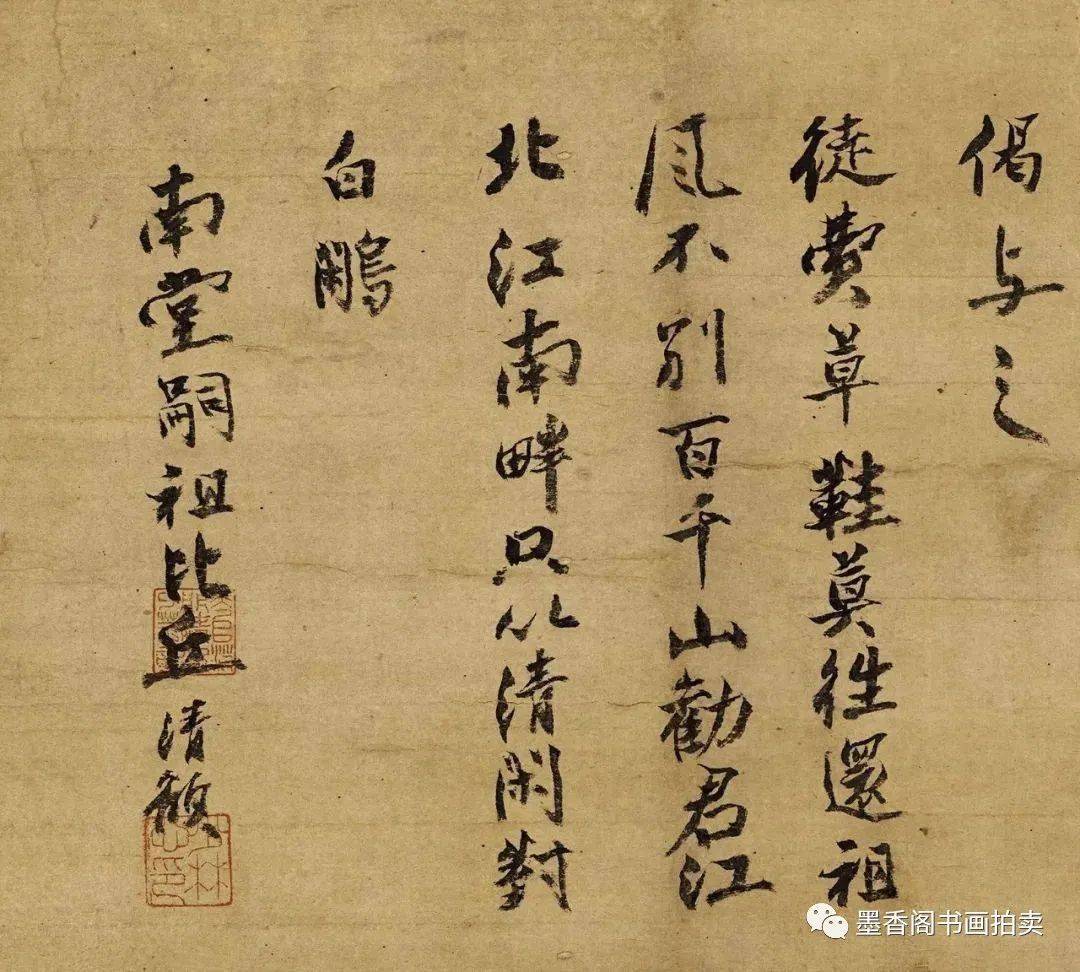 偈与之
徒費草鞋莫往還祖
風不別百千山勸君江
北江南畔只以清閑對
白鷴
南堂嗣祖比丘清欲
墨香阁书画拍卖